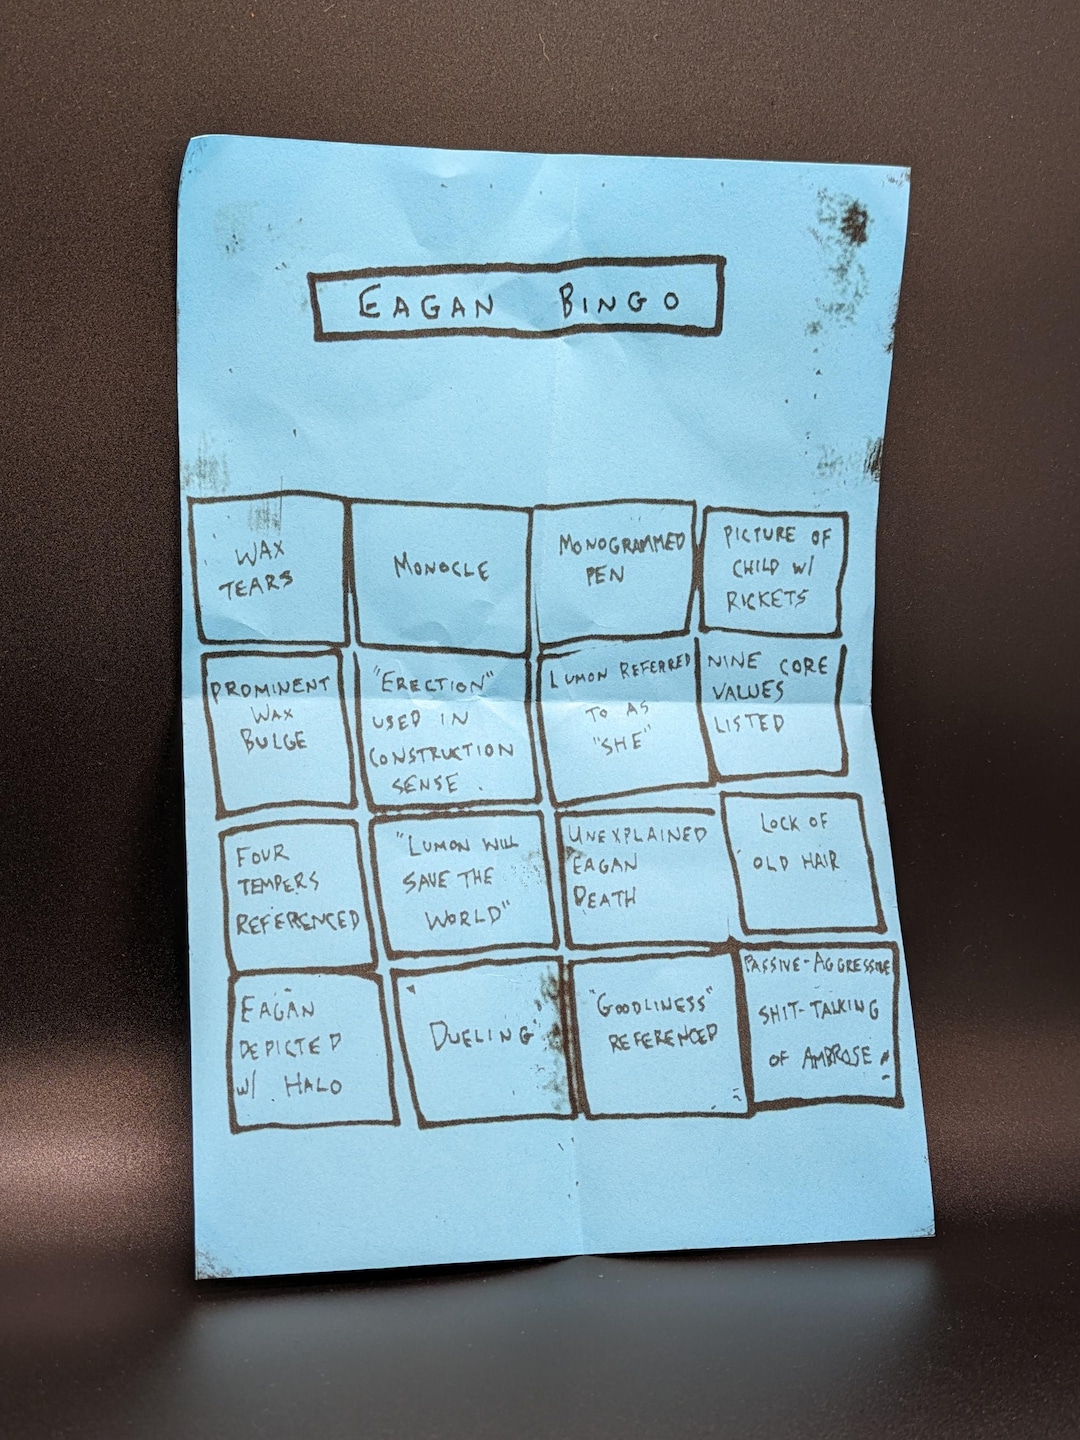 EAGAN BINGO
WAX
TEARS
MONOCLE
MONOGRAMMED
PEN
PICTURE OF
CHILD W/
RICKETS
PROMINENT
WAX
BULGE
"ERECTION"
USED IN
CONSTRUCTION
SENSE.
LUMON REFERRED
TO AS
"SHE"
NINE CORE
VALUES
LISTED
FOUR
TEMPERS
REFERENCED
"LUMON WILL
SAVE THE
WORLD"
UNEXPLAINED
EAGAN
DEATH
LOCK OF
OLD HAIR
EAGAN
DEPICTED
W/ HALO
DUELING
"GOODLINESS"
REFERENCED
PASSIVE-AGGRESSIVE
SHIT-TALKING
OF AMBROSE